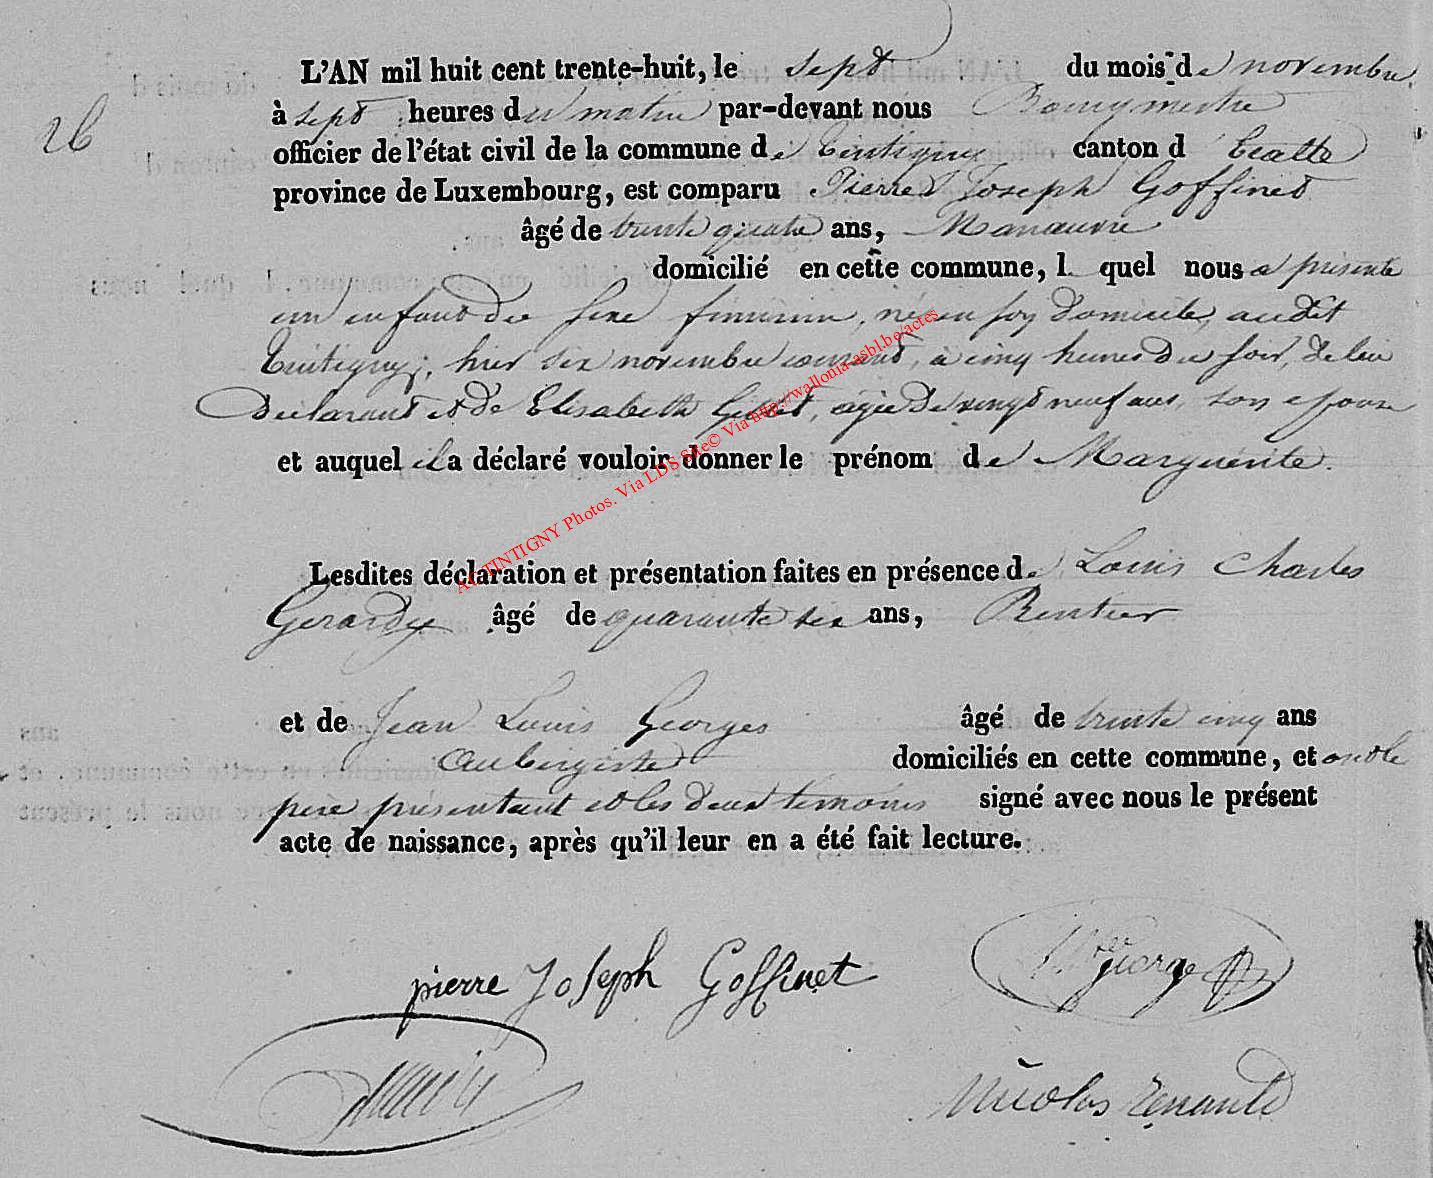 L'AN mil huit cent trente-huit, le sept du mois de novembre
26
à sept heures du matin par-devant nous Bourgmestre
officier de l'état civil de la commune de Tintigny canton d'Etalle
province de Luxembourg, est comparu Pierre Joseph Goffinet
âgé de trente quatre ans, Manoeuvre
domicilié en cette commune, l quel nous a présenté
un enfant du sexe féminin, né en son domicile, audit
Tintigny, hier six novembre courant, à cinq heures du soir, de lui
déclarant et de Elisabeth agée de vingt neuf ans, son epouse
et auquel il a déclaré vouloir donner le prénom de Marguerite.
AC TINTIGNY Photos. Via LDS Site© Via http://wallonia-asbl.be/actes
Lesdites déclaration et présentation faites en présence de Louis Charles
Gerardy âgé de quarante six ans, Rentier
et de Jean Louis Georges âgé de trente cinq ans
Aubergiste domiciliés en cette commune, et ont le
pere présentant et les deux temoins signé avec nous le présent
acte de naissance, après qu'il leur en a été fait lecture.
pierre Joseph Goffinet
George
Nicolas Renauld